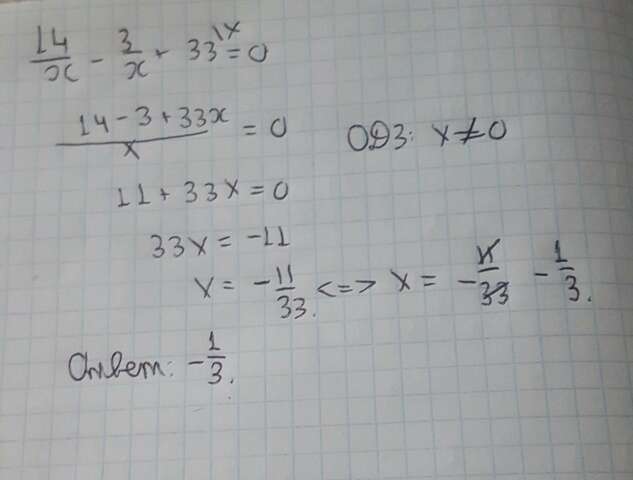 14/x - 3/x + 33 \x = 0
14 - 3 + 33x / x = 0 ОДЗ: x ≠ 0
11 + 33x = 0
33x = -11
x = - 11/33. <=> x = - 11/33 - 1/3.
Ответ: - 1/3.